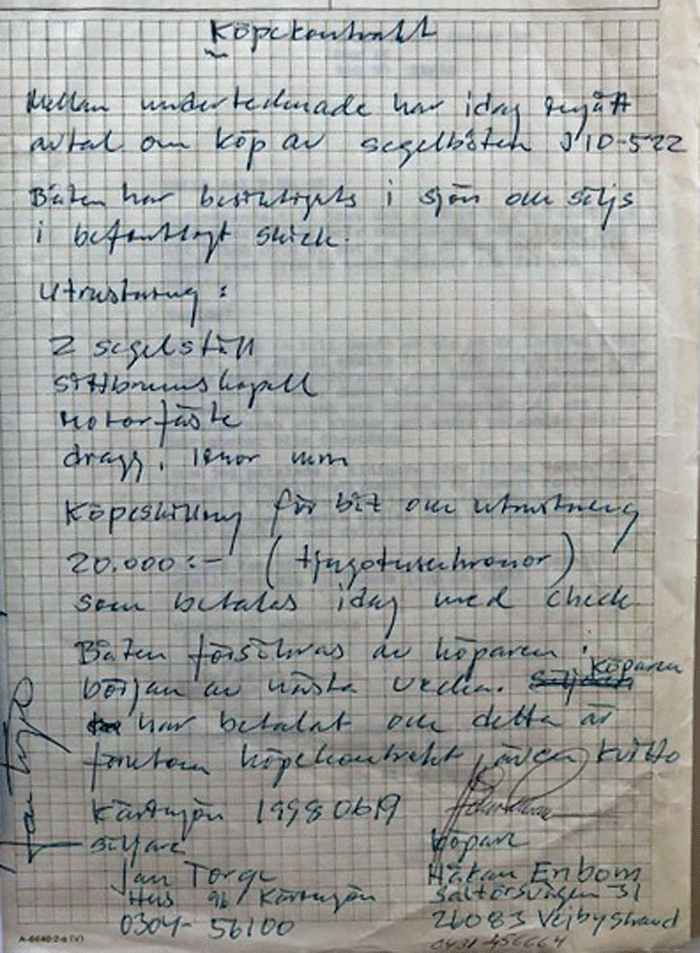 Köpekontrakt
Mellan undertecknade har idag ingått
avtal om köp av segelbåten J10-522
Båten har besiktigats i sjön och säljs
i befintligt skick.
Utrustning:
2 segelställ
sittbrunnskapell
Motorfäste
dragg, linor mm
Köpeskilling för båt och utrustning
20.000:- (tjugotusenkronor)
som betalas idag med check
Båten försäkras av köparen i
början av nästa vecka. köparen
har betalat och detta är
förutom köpekontrakt även kvitto
Käringön 19980619
Säljare
Jan Torge
Hus 96 Käringön
0304-56100
Köpare
Håkan Enbom
Saltörsvägen 31
26083 Vejbystrand
A-6640-2-a (V)